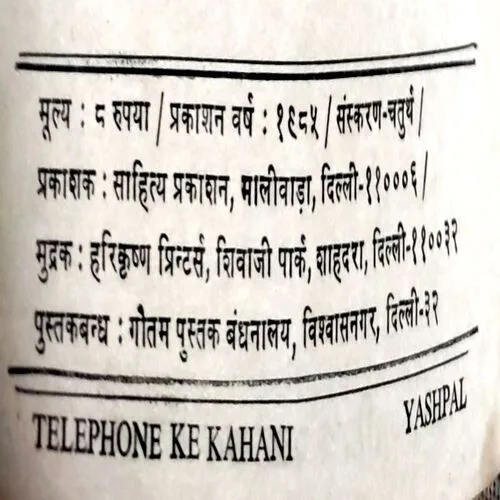 मूल्य : ८ रुपया / प्रकाशन वर्ष : १९८५ / संस्करण-चतुर्थ /
प्रकाशक : साहित्य प्रकाशन, मालीवाड़ा, दिल्ली-११०००६ /
मुद्रक : हरिकृष्ण प्रिन्टर्स, शिवाजी पार्क, शाहदरा, दिल्ली-११००३२
पुस्तकबन्ध : गौतम पुस्तक बंधनालय, विश्वासनगर, दिल्ली-३२
TELEPHONE KE KAHANI YASHPAL